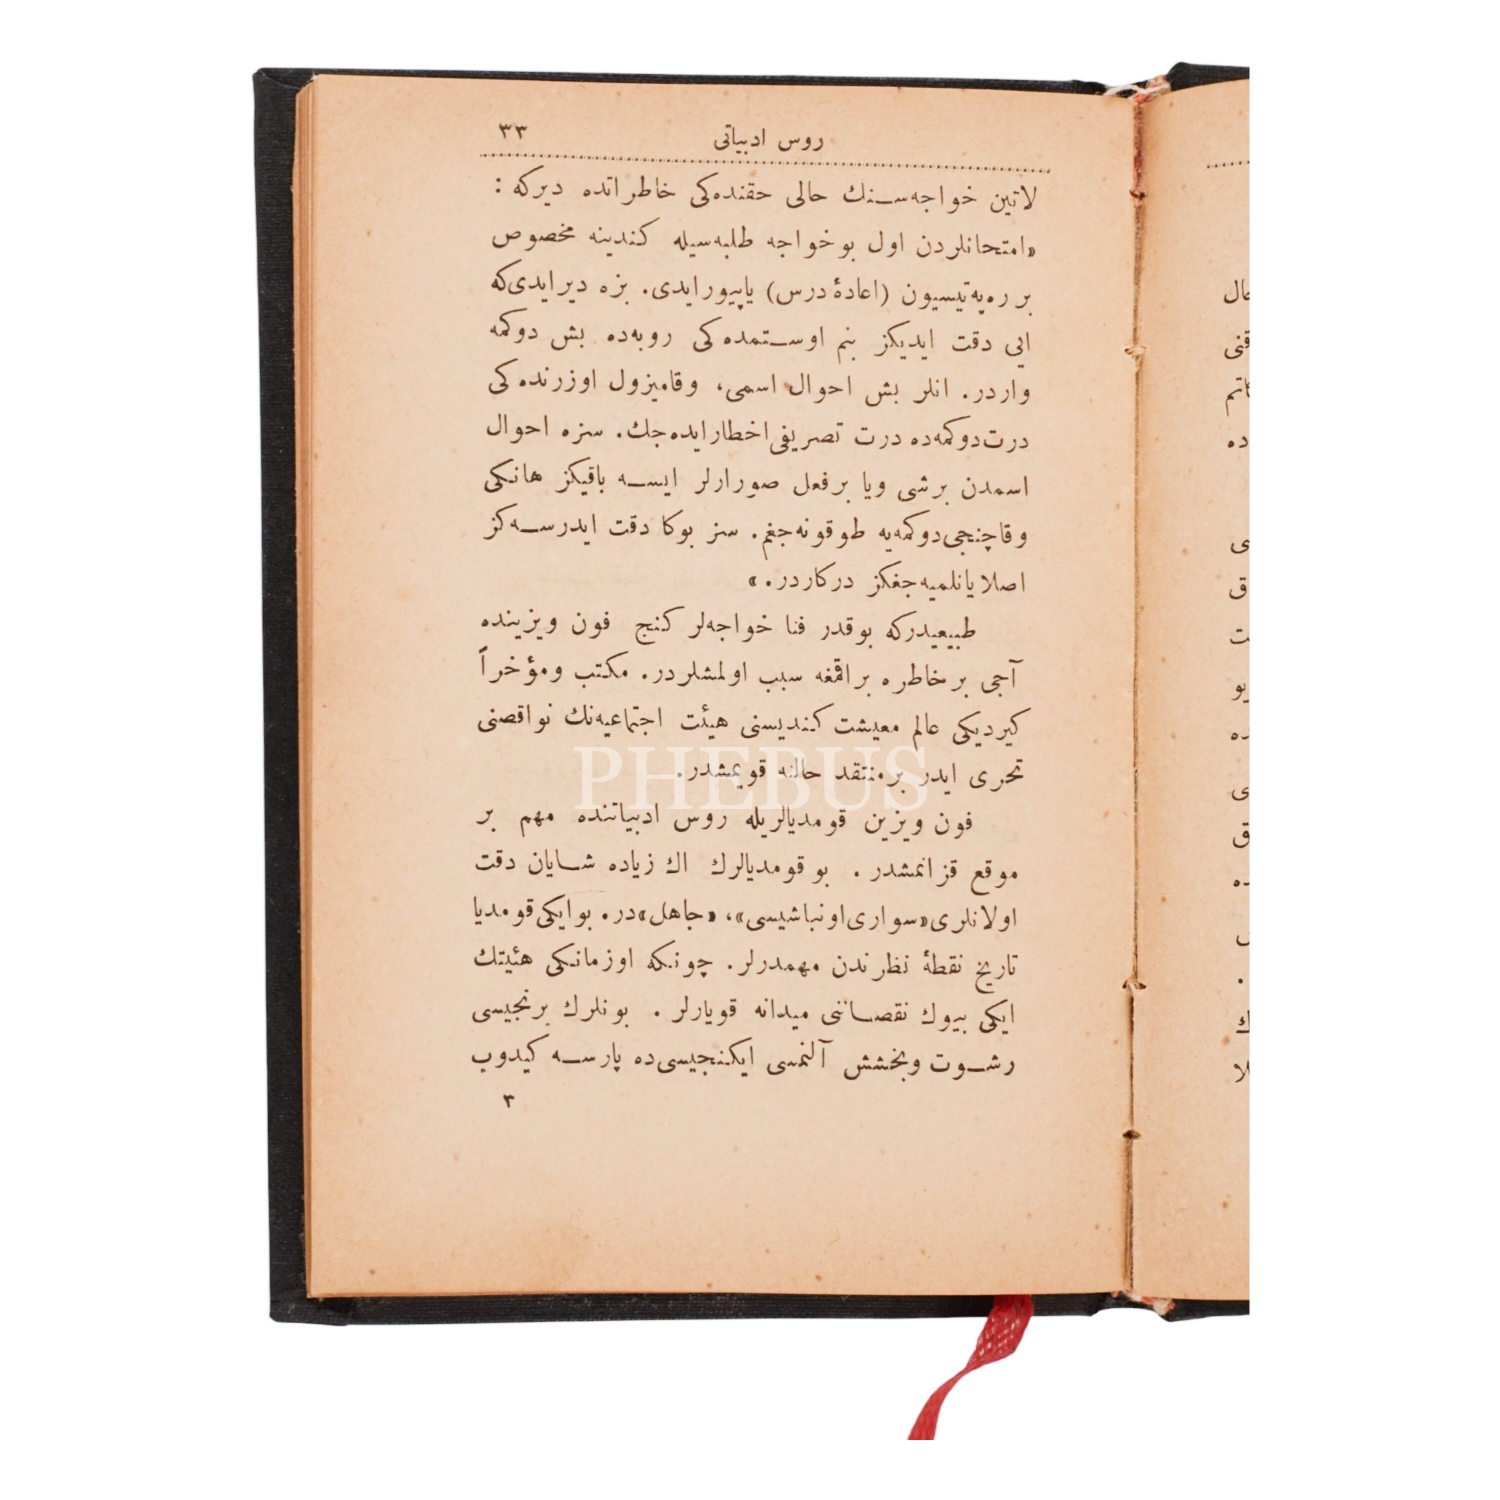 روس ادبیاتی ٣٣
لاتین خواجه‌سنك حالی حقنده‌کی خاطراتده دیرکه :
«امتحانلردن اول بو خواجه طلبه‌سیله کندینه مخصوص
بر ره‌په‌تیسیون (اعادهٔ درس) یاپیور ایدی. بزه دیر ایدی‌که
ایی دقت ایدیکز بنم اوستمده‌کی روبه‌ده بش دوکمه
واردر. انلر بش احوال اسمی، وقامیزول اوزرنده‌کی
درت دوکمه‌ده درت تصریفی اخطار ایده‌جك. سزه احوال
اسمدن برشی ویا برفعل صورارلر ایسه باقیکز هانکی
وقاچنجی دوکمه‌یه طوقونه‌جغم. سز بوکا دقت ایدرسه‌کز
اصلا یانلمیه‌جغکز درکاردر.»
طبیعیدرکه بوقدر فنا خواجه‌لر کنج فون ویزینده
آجی بر خاطره براقمغه سبب اولمشلردر. مکتب ومؤخراً
کیردیکی عالم معیشت کندیسنی هیئت اجتماعیه‌نك نواقصنی
تحری ایدر بر منتقد حالنه قویمشدر.
فون ویزین قومدیالریله روس ادبیاتنده مهم بر
موقع قزانمشدر . بو قومدیالرك اك زیاده شایان دقت
اولانلری «سواری اونباشیسی»، «جاهل» در. بو ایکی قومدیا
تاریخ نقطهٔ نظرندن مهمدرلر. چونکه او زمانکی هئیتك
ایکی بیوك نقصاننی میدانه قویارلر . بونلرك برنجیسی
رشوت وبخشش آلنمسی ایکنجیسی‌ده پارسه کیدوب
٣
حال
ده
ق
ت
یو
ده
ق
ده
.
ك
لا
PHEBUS